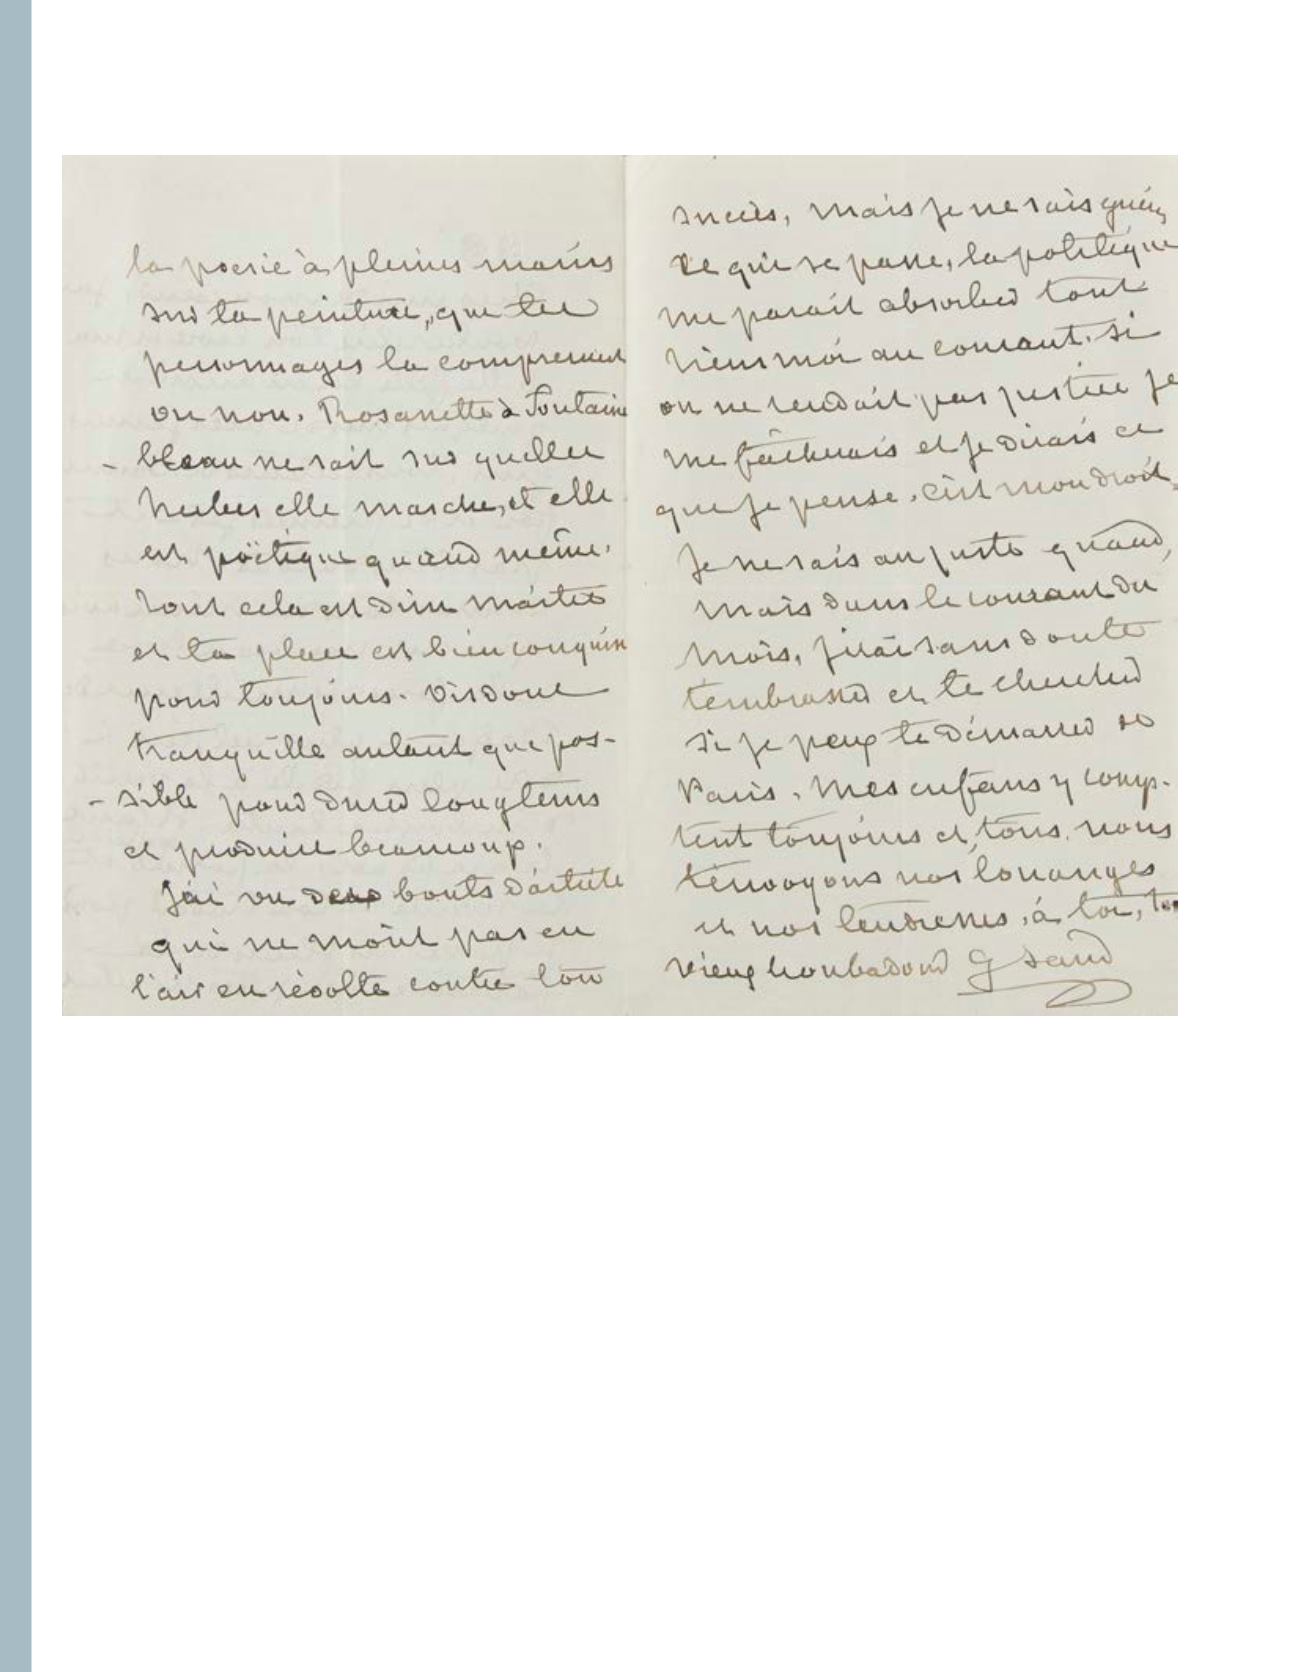 la poesie à pleines mains
sur ta peinture, que tes
personnages la comprennent
ou non. Rosanette à Fontaine
- bleau ne sait sur quelles
herbes elle marche, et elle
est poëtique quand même.
tout cela est d'un maitre
et ta place est bien conquise
pour toujours. Vis donc
tranquille autant que pos-
- sible pour durer longtems
et produire beaucoup.
J'ai vu deux bouts d'article
qui ne m'ont pas eu
l'air en révolte contre ton
succès, mais je ne sais guères
ce qui se passe, la politique
me parait absorber tout
tiens moi au courant. si
on ne rendait pas justice je
me fâcherais et je dirais ce
que je pense. c'est mon droit.
Je ne sais au juste quand,
mais dans le courant du
mois, j'irai sans doute
t'embrasser et te chercher
si je peux te démarrer de
Paris. Mes enfans y comp-
tent toujours et, tous, nous
t'envoyons nos louanges
et nos tendresses, à toi, ton
vieux troubadour G Sand